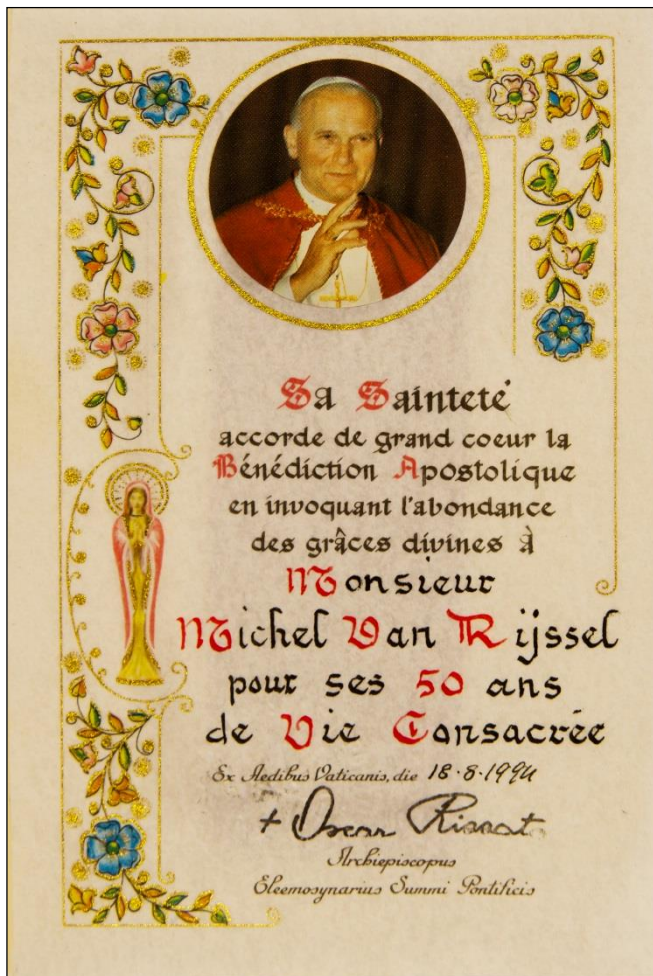 Sa Sainteté
accorde de grand coeur la
Bénédiction Apostolique
en invoquant l'abondance
des grâces divines À
Monsieur
Michel Van Rijssel
pour ses 50 ans
de Vie Consacrée
Ex Aedibus Vaticanis, die 18.8.1994
+ Oscar Rizzato
Archiepiscopus
Eleemosynarius Summi Pontificis